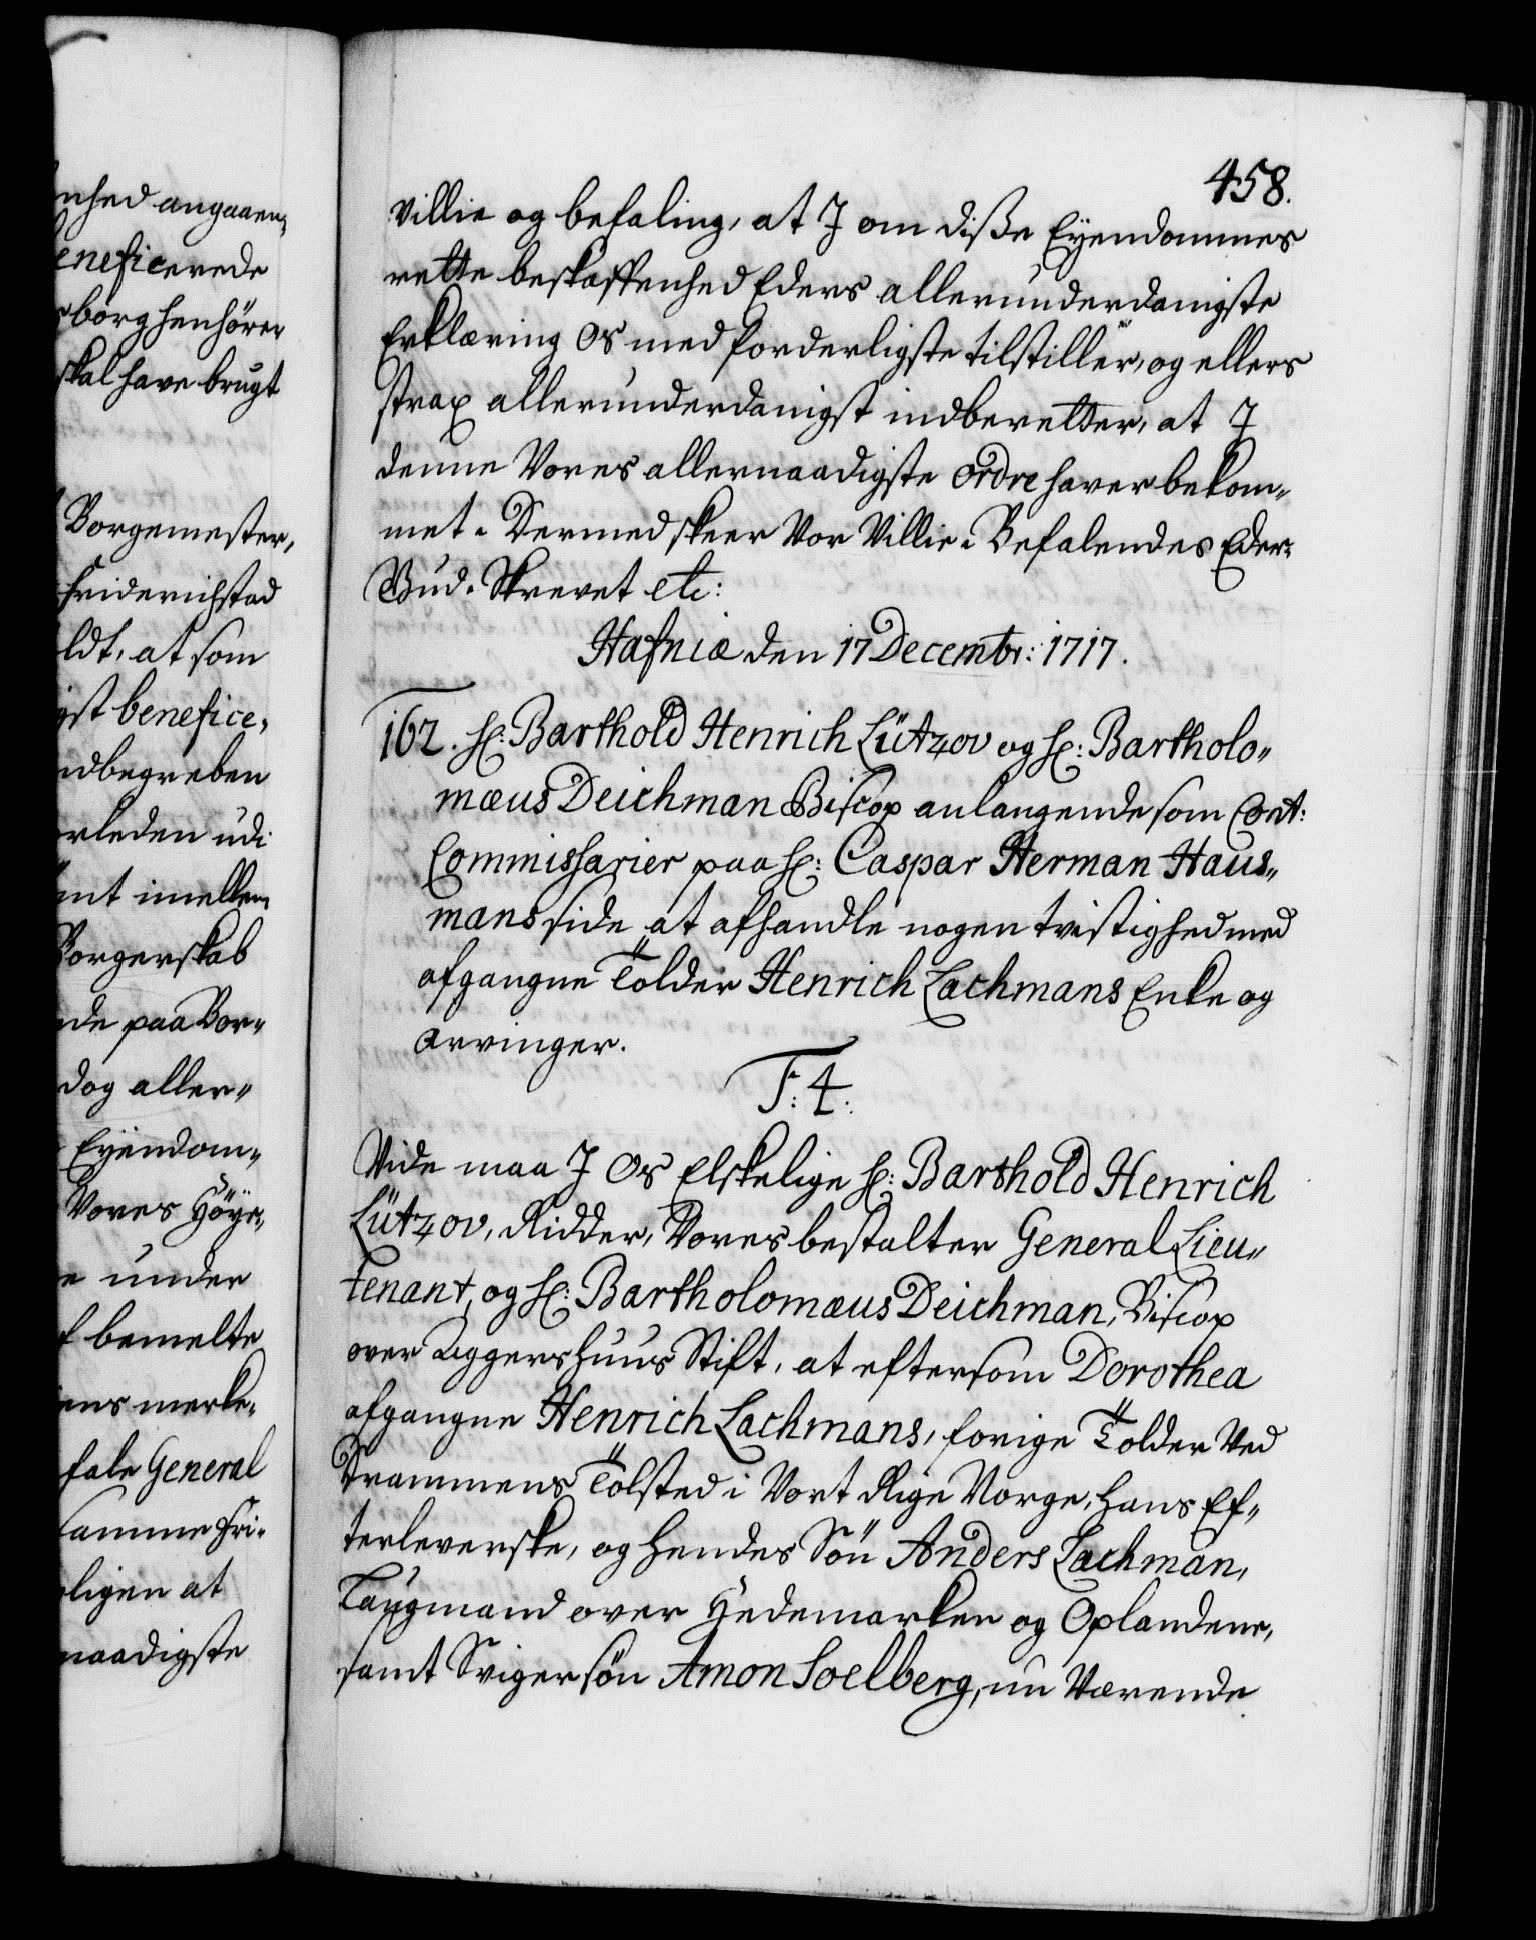 nhed angaaen-
eneficerede
sborg henhörer
skal have brugt
Borgemester,
Friderichstad
ldt, at som
igst benefice-
ndbegreben
rleden udi
mt imellem
Borgerskab
nde paa Bor-
dog aller-
Eyendom-
Vores Höye-
e under
f bemelte
ens merke-
fale General
samme Fri-
ligen at
naadigste
458.
Villie og befaling, at J om disse Eyendommes
rette beskaffenhed Eders allerunderdanigste
Erklæring Os med forderligste tilstiller, og ellers
strax allerunderdanigst indberetter, at J
denne Vores allernaadigste ordre haver bekom-
met. Dermed skeer Vor Villie. Befalendes Eder
Gud. Skrevet etc:
Hafniæ den 17 Decembr: 1717.
162. H: Barthold Henrich Lützov og H: Bartholo-
mæus Deichman Biscop anlangende som Cont:
Commissarier paa H: Caspar Herman Haus-
mans side at afhandle nogen tvistighed med
afgangne Tolder Henrich Lachmans Enke og
Arvinger.
F: 4.
Vide maa J Os Elskelige H: Barthold Henrich
Lützov, Ridder, Vores bestalter General Lieu-
tenant, og H: Bartholomæus Deichman, Biscop
over Aggershuus Stift, at eftersom Dorothea
afgangne Henrich Lachmans, forige Tolder Ved
Drammens Tolsted i Vort Rige Norge, hans Ef-
terleverske, og hendes Sön Anders Lachman,
Laugmand over Hedemarken og Oplandene,
samt Svigersön Amon Soelberg, nu Værende